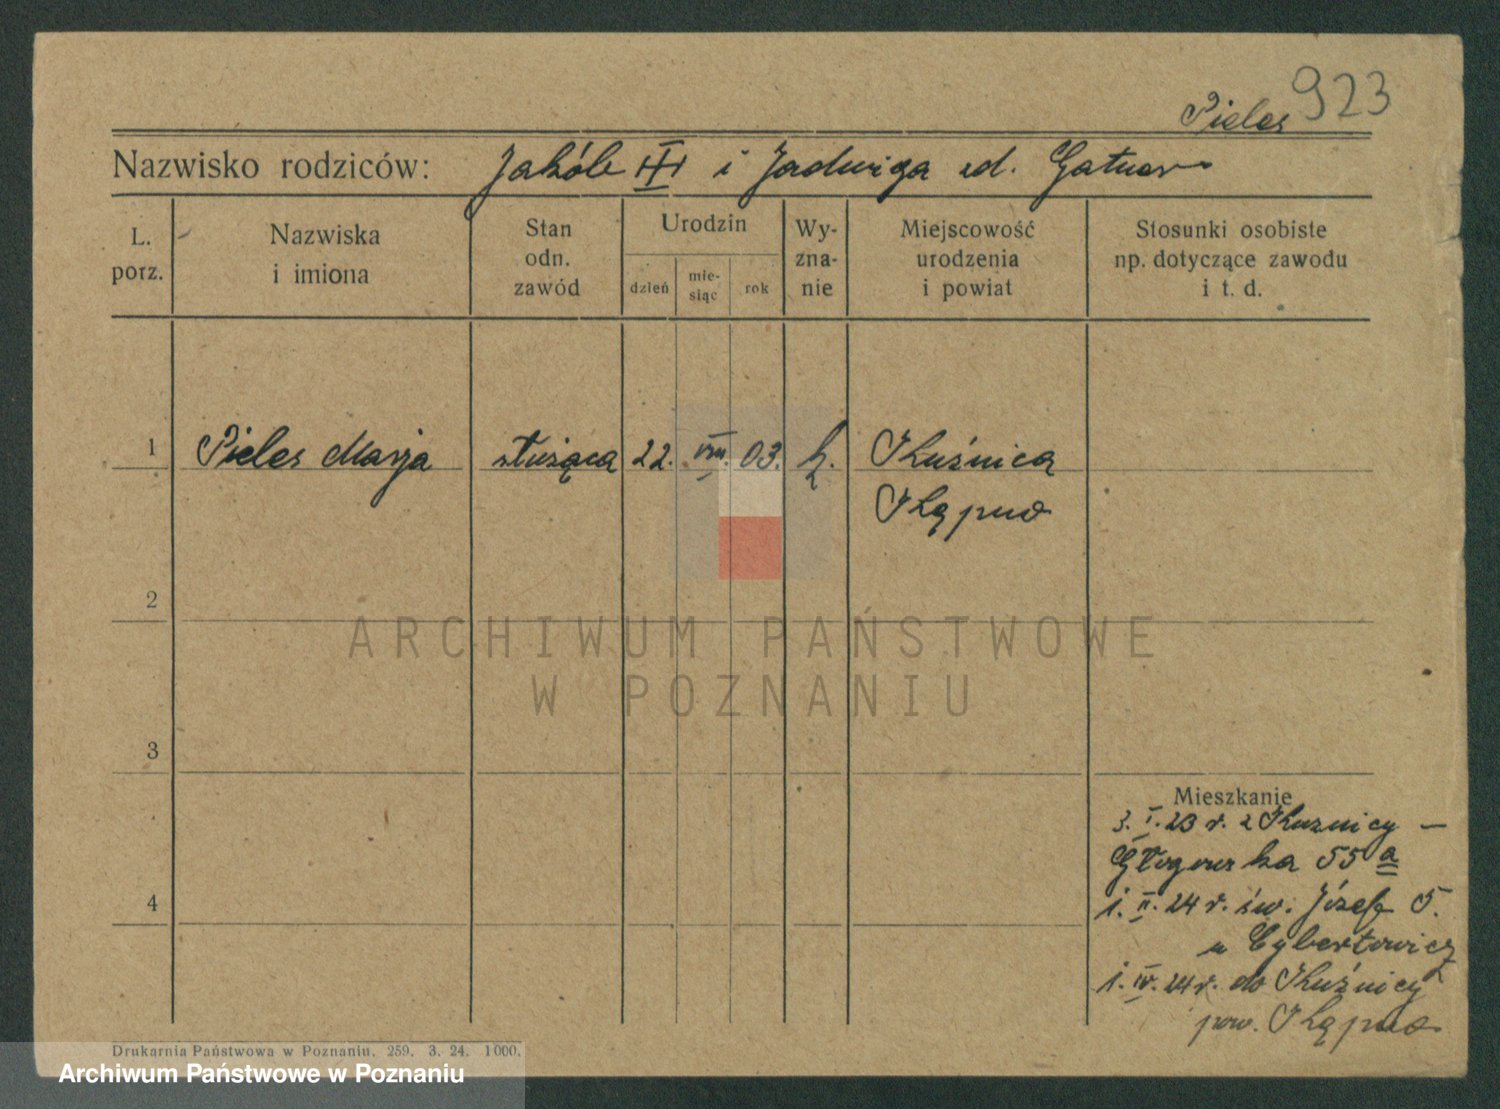 923
Pieles
Nazwisko rodziców: Jakób III i Jadwiga zd. Gatner
L. porz.
Nazwiska i imiona
Stan odn. zawód
Urodzin
dzień
mie-siąc
rok
Wy-zna-nie
Miejscowość urodzenia i powiat
Stosunki osobiste np. dotyczące zawodu i t. d.
1 Pieles Marja służąca 22. VIII. 03. k. Kuźnica
Kępno
2
3
4
Mieszkanie
3. I. 23 r. z Kuznicy –
Głogowska 55 a
1. II. 24 r. św. Józef 5.
u Cybertowicz
1. IV. 24 r. do Kuźnicy
pow. Kępno
Drukarnia Państwowa w Poznaniu. 259. 3. 24. 1000.
ARCHIWUM PAŃSTWOWE
W POZNANIU
Archiwum Państwowe w Poznaniu